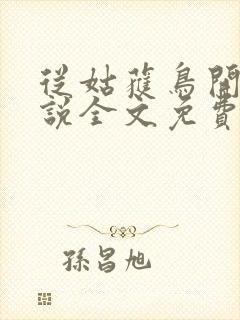 從姑蘿鳥開
說全文免費
孫昌旭